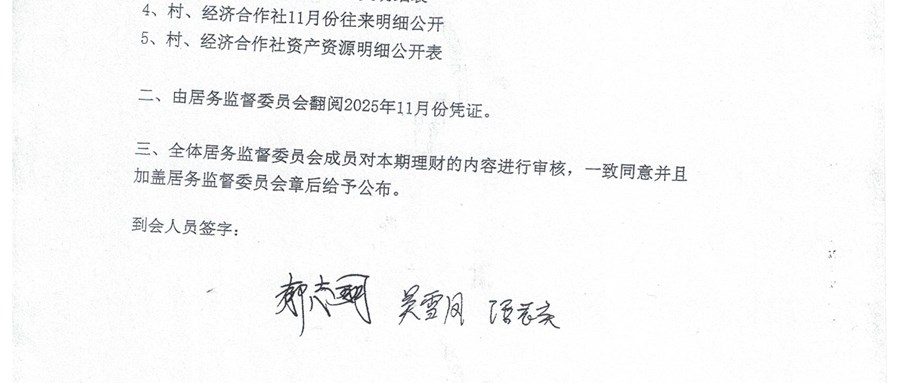 4、村、经济合作社11月份往来明细公开
5、村、经济合作社资产资源明细公开表
二、由居务监督委员会翻阅2025年11月份凭证。
三、全体居务监督委员会成员对本期理财的内容进行审核，一致同意并且
加盖居务监督委员会章后给予公布。
到会人员签字：
吴雪凤